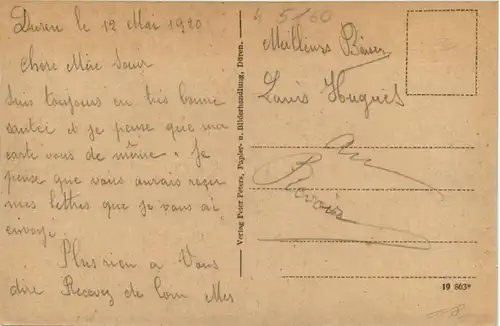 Duren le 12 Mai 1920
Chere Mère Soeur
Suis toujours en très bonne
santée et je pense que ma
carte vous de même. Je
pense que vous aurais reçez
mes lettres que je vous ai
envoyé.
Plus rien a Vous
dire Recevez de loin Mes
4 5/60
Meilleurs Baisers
Louis Hugues
Au
Revoire
Verlag Peter Peters, Papier- u. Bilderhandlung, Düren.
19 863*